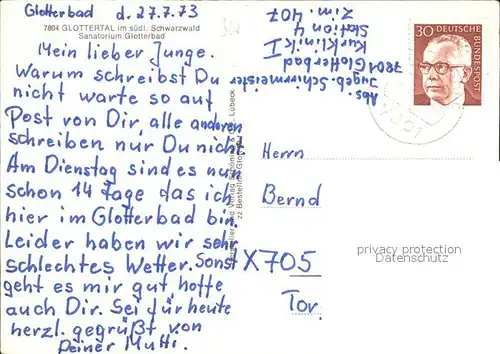 Glotterbad d. 27.7.73
7804 GLOTTERTAL im südl. Schwarzwald
Sanatorium Glotterbad
Mein lieber Junge.
Warum schreibst Du
nicht warte so auf
Post von Dir, alle anderen
schreiben nur Du nicht.
Am Dienstag sind es nun
schon 14 Tage das ich
hier im Glotterbad bin.
Leider haben wir sehr
schlechtes Wetter. Sonst
geht es mir gut hoffe
auch Dir. Sei für heute
herzl. gegrüßt von
Deiner Mutti.
Abs.
Ingeb. Schirrmeister
7801 Glotterbad
Kurklinik I
Station 4
Zim. 407
30 DEUTSCHE
BUNDESPOST
7801
Herrn
Bernd
X705
Tor.
privacy protection
Datenschutz